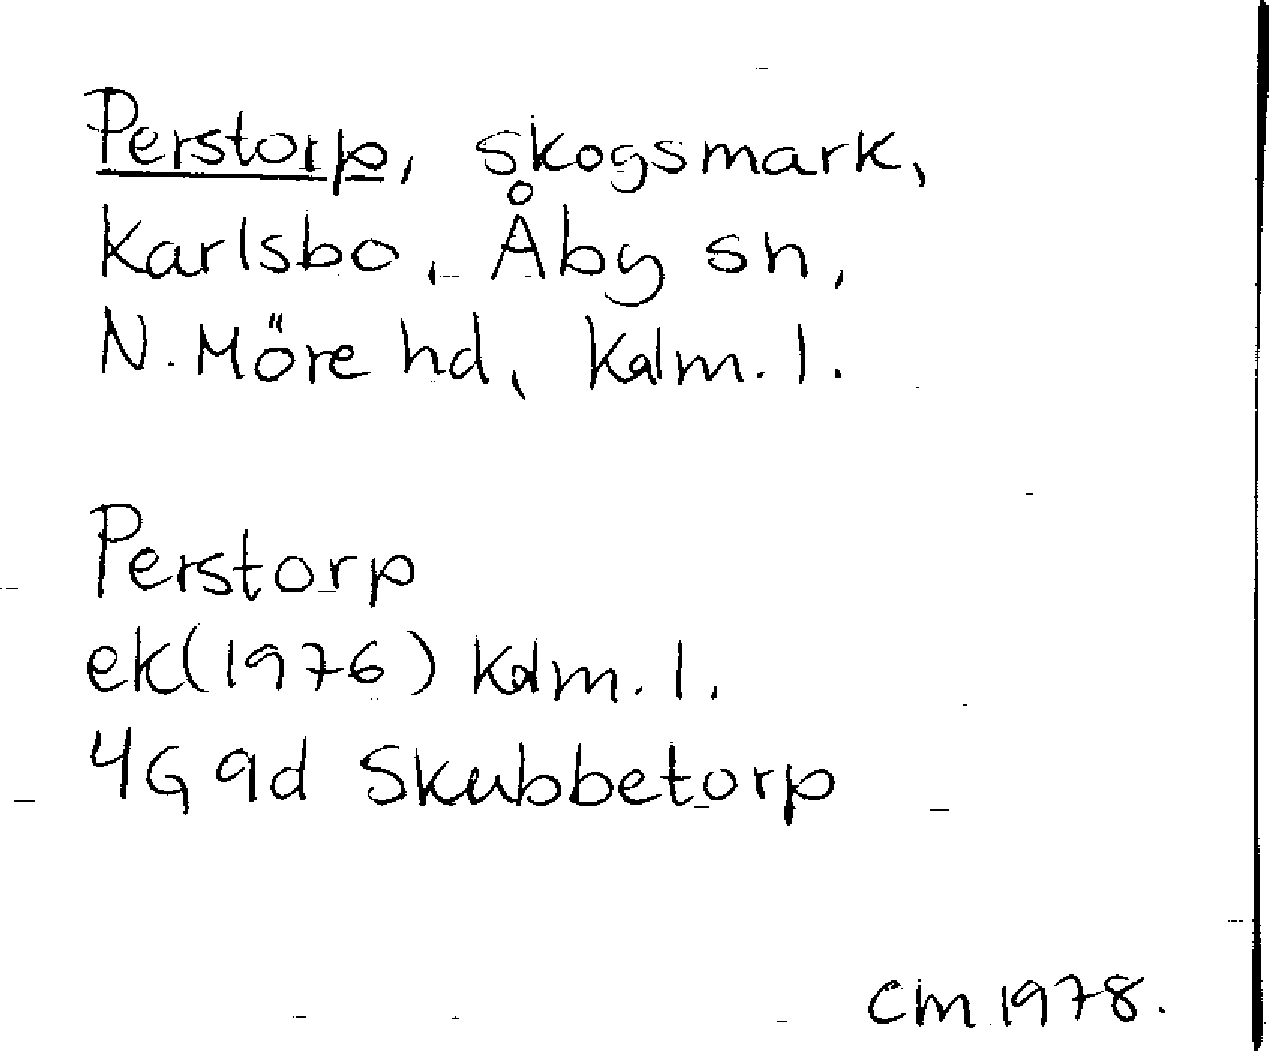 Perstorp, skogsmark,
Karlsbo, Åby sn,
N. Möre hd, Kalm. l.
Perstorp
ek(1976) Kalm. l.
4G 9d Skubbetorp
CM 1978.